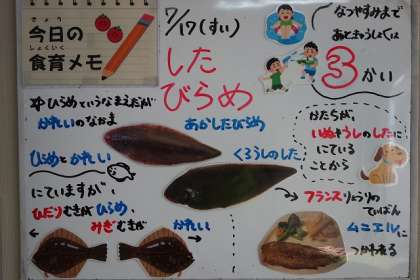 きょう
今日の
しょくいく
食育メモ
7/17(すい)
したびらめ
なつやすみまで
あときゅうしょくは
3かい
※ひらめというなまえだが
かれいのなかま
ひらめとかれい
にていますが、
ひだりむきがひらめ、
みぎむきが
かれい
あかしたびらめ
くろうしのした
かたちが、
いぬやうしのしたに
にている
ことから
フランスりょうりの
ていばん
ムニエルに
つかわれる